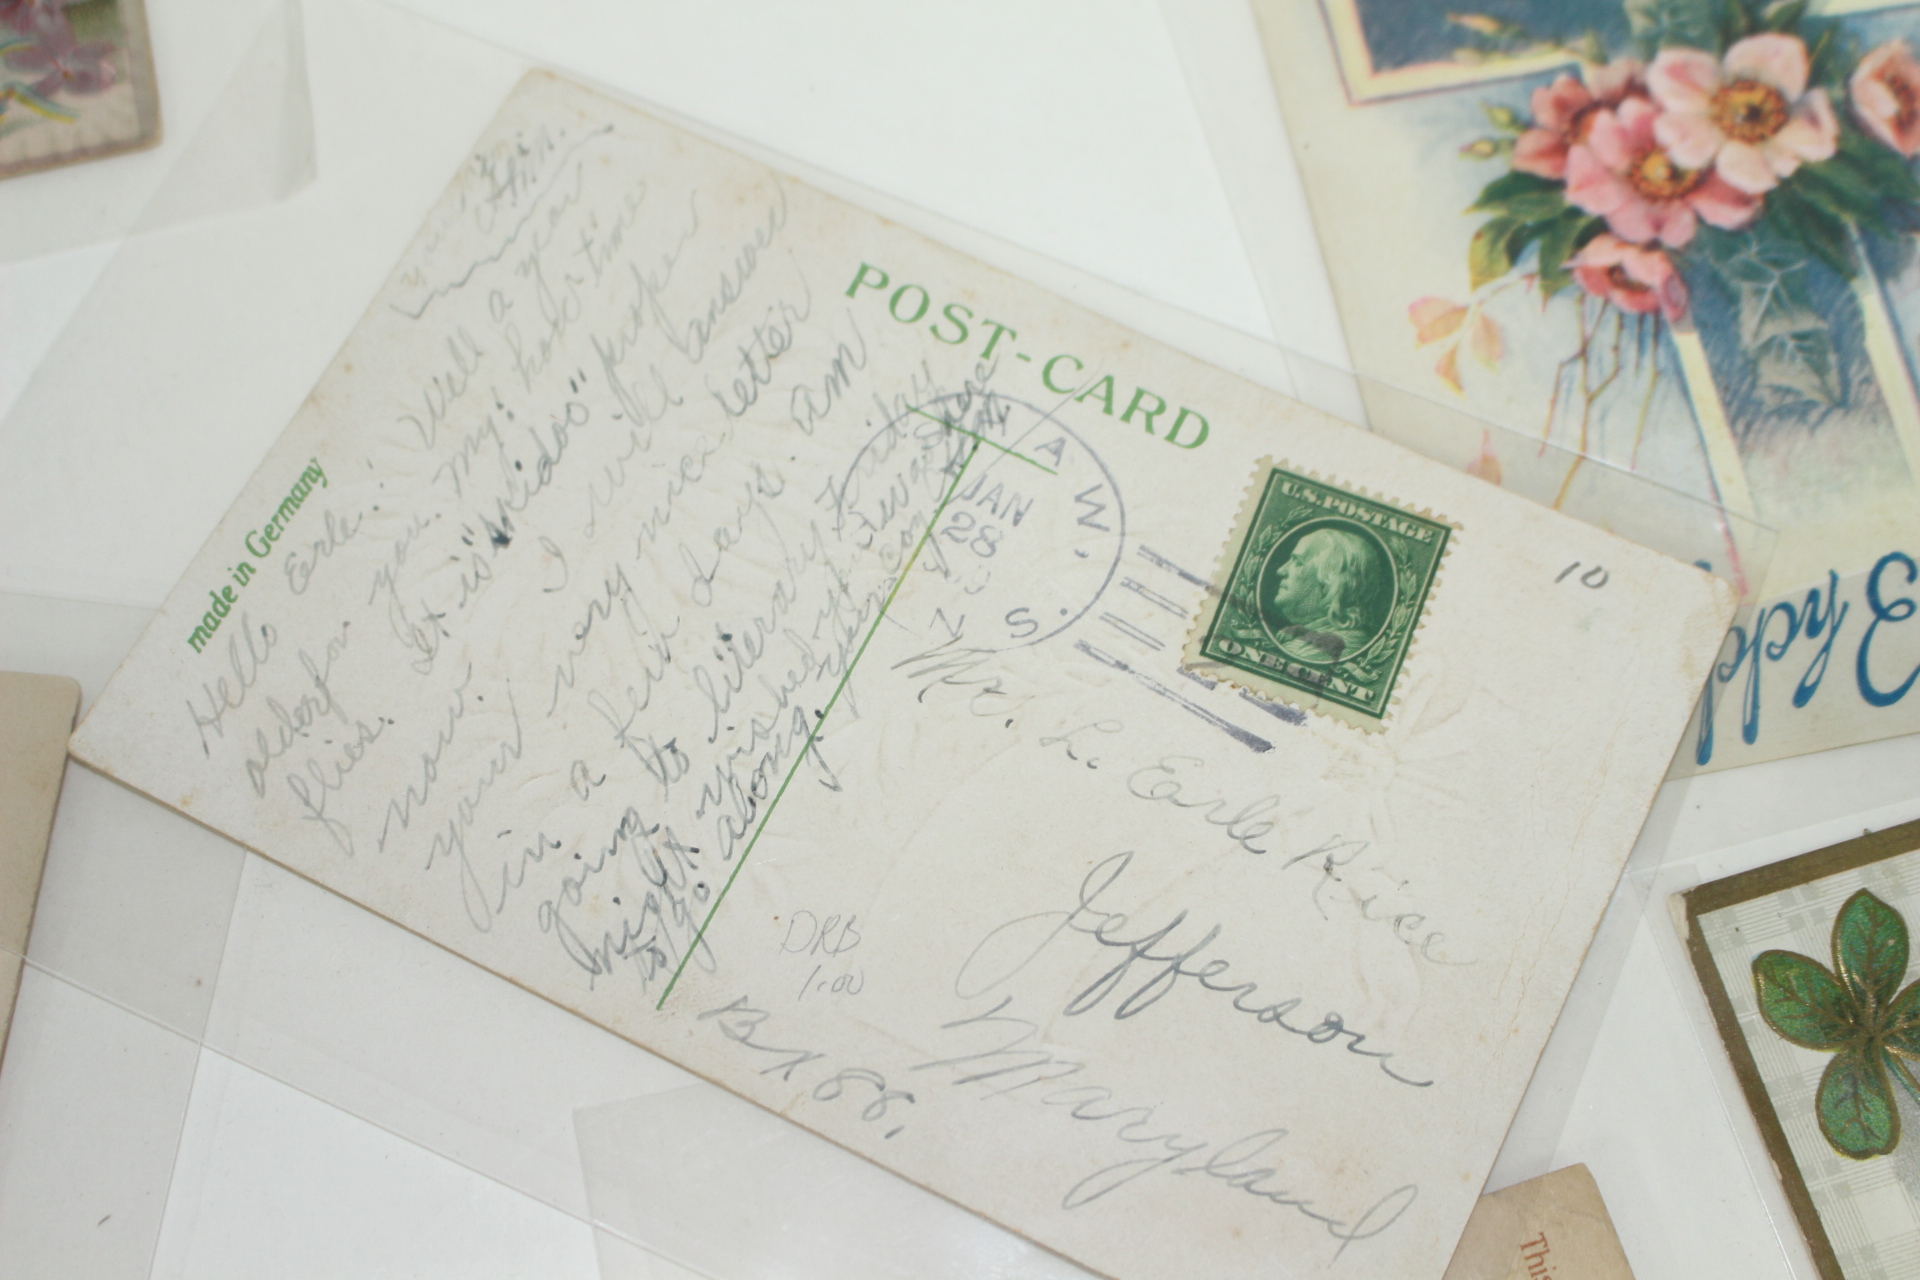 POST-CARD
made in Germany
Hello Erle! Well a year
older for you. My! how time
flies. It is "skidoo" proper
now. I will answer
your very nice letter
in a few days. Am
going to literary Friday
night wished you were here
to go along.
JAN
28
N S.
A W.
U.S. POSTAGE
ONE CENT
10
Mr. L. Erle Rice
Jefferson
Maryland
Bx 88.
DRB
1.00
This